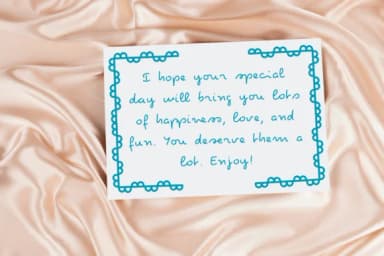 I hope your special
day will bring you lots
of happiness, love, and
fun. You deserve them a
lot. Enjoy!